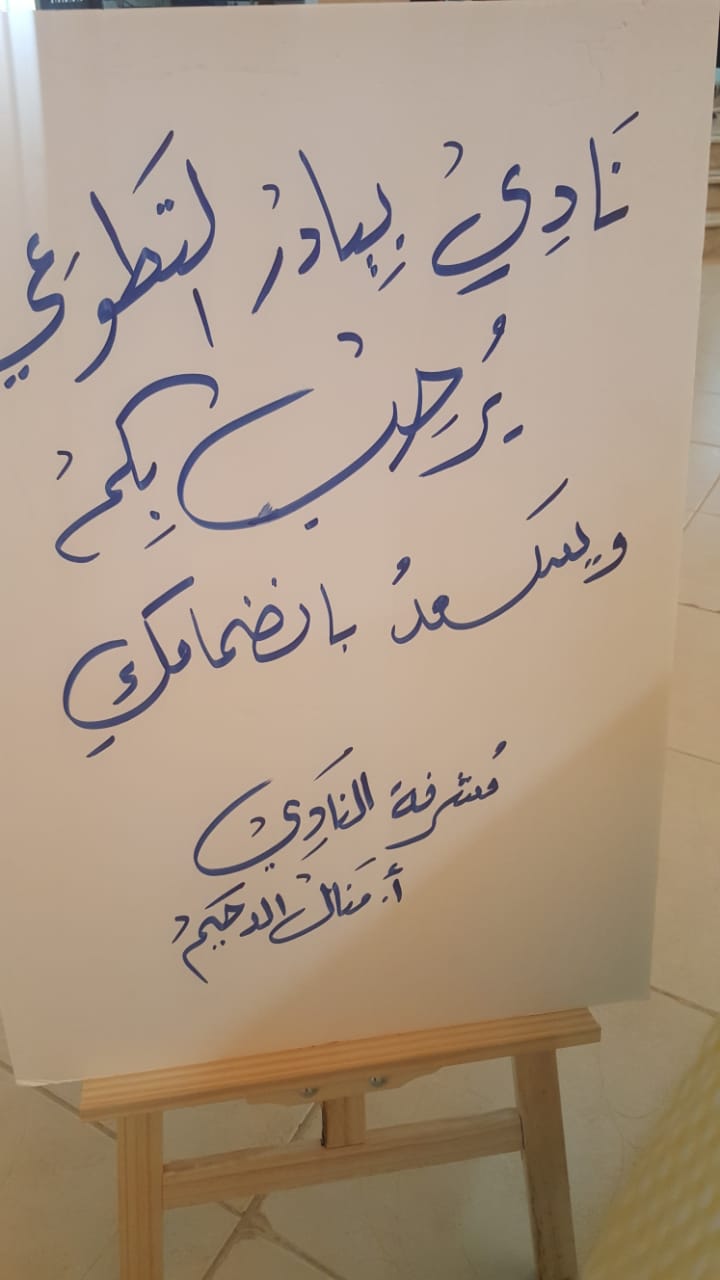 نَادِيْ بِبادرْ التَطوعَي
يُرحِبْ بِكمْ
ويسعدُ بانضمامكِ
مُشرفة النَادِيْ
أ. مَنالْ الدحَيمْ